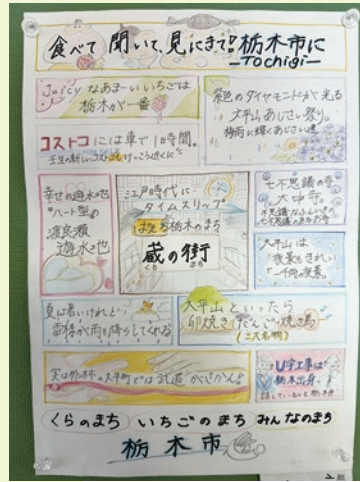 食べて 聞いて、見にきて!栃木市に
—Tochigi—
Juicyなあま〜いいちごは
栃木が一番
紫色のダイヤモンドが光る
太平山あじさい祭り。
梅雨に輝くあじさい達
コストコには車で1時間。
壬生の新しいコストコもけっこう近くに
幸せの遊水地
"ハート型の
渡良瀬
遊水地
江戸時代に
タイムスリップ
はえる栃木のまち
蔵の街
くら まち
七不思議の寺
大中寺。
不思議な
太平山は
夜景もきれい
夏は暑いけれど…
雷様が雨を降らしてくれる
太平山といったら
卵焼き だんご 焼き鳥
(三大名物)
実は栃木市の大平町では武道がさかん!
U字工事は
栃木出身。
くらのまち いちごのまち みんなのまち
栃木市